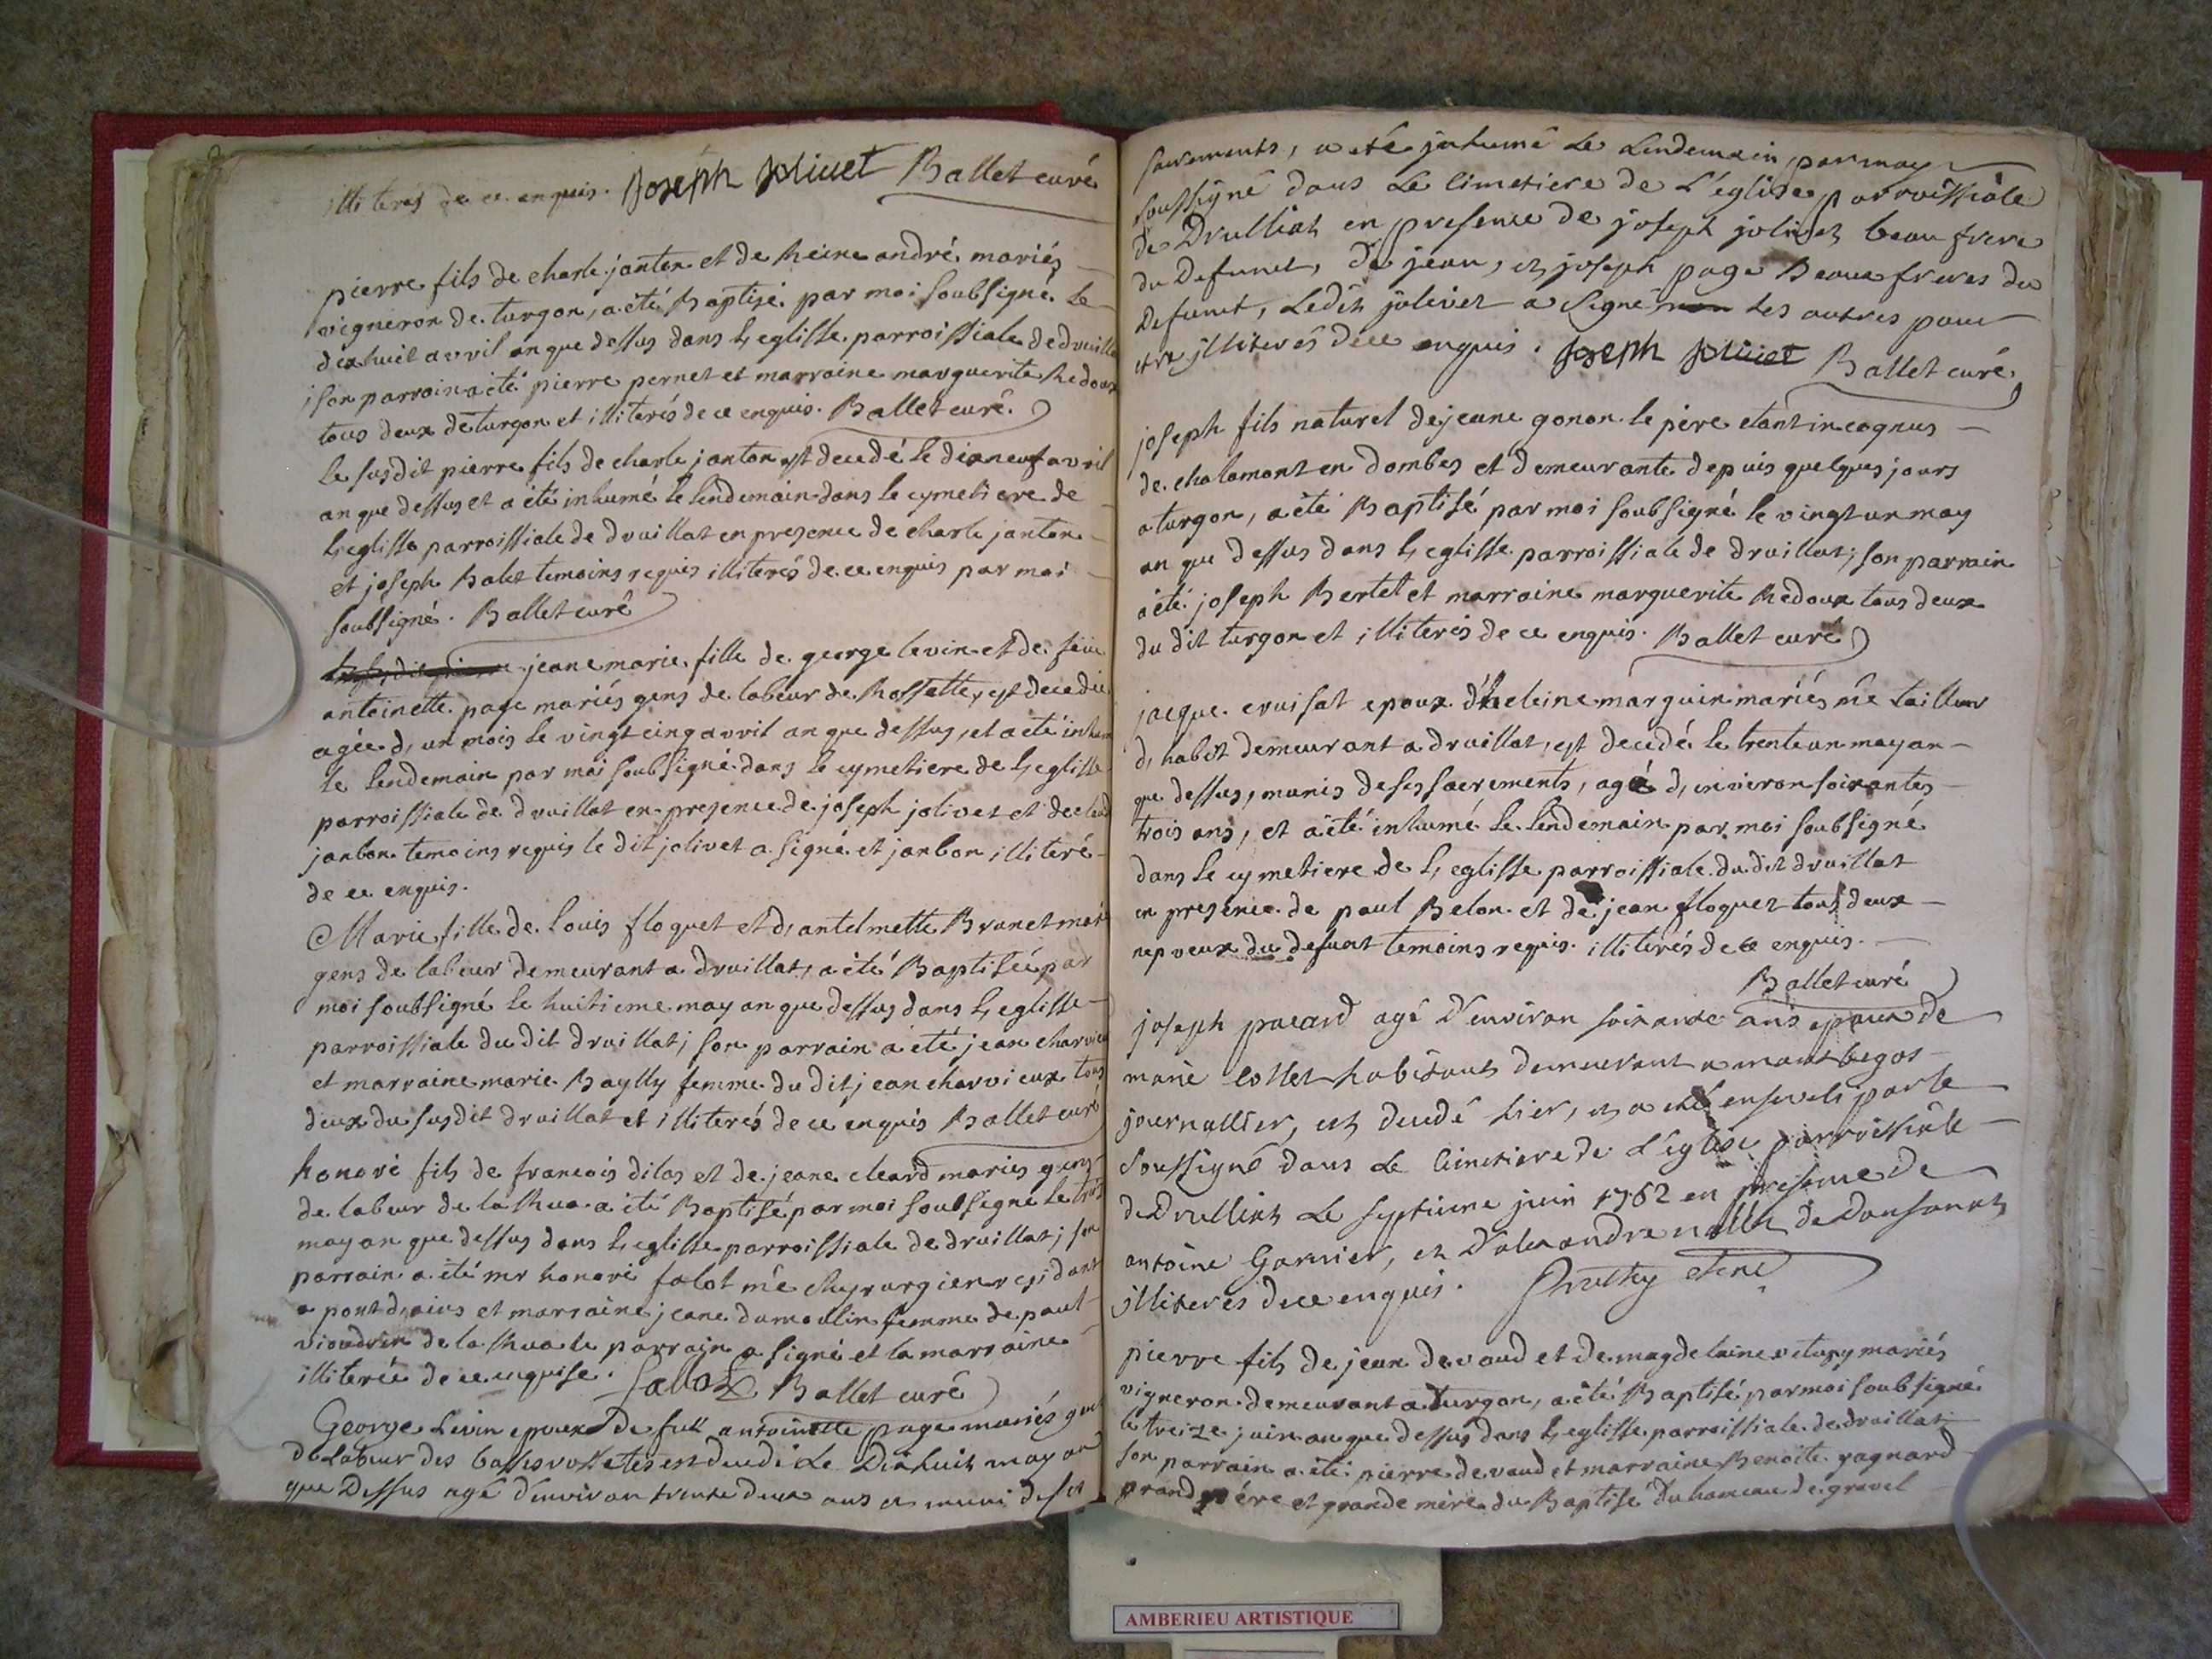 illiterés de ce enquis. Joseph Joliuet Ballet curé
pierre fils de charle janton et de Reine andré mariés
vigneron de turgon, a été Baptisé par moi soubsigné le
dixhuit avril an que dessus dans L'eglisse parroissiale de druillat
son parrain a été pierre pernet et marraine marguerite Redoux
tous deux de turgon et illiterés de ce enquis. Ballet curé.
le susdit pierre fils de charle janton est decedé le dixneuf avril
an que dessus et a été inhumé le lendemain dans le cymetiere de
L'eglisse parroissiale de druillat en presence de charle janton
et joseph Balet temoins requis illiterés de ce enquis par moi
soubsigné. Ballet curé
jeane marie fille de george levin et de feüe
antoinette page mariés gens de labeur de Rossette, est decedée
agée d'un mois le vingt cinq avril an que dessus, et a été inhum
le lendemain par moi soubsigné dans le cymetiere de L'eglisse
parroissiale de druillat en presence de joseph jolivet et de
janbon temoins requis le dit jolivet a signé et janbon illiteré
de ce enquis.
Marie fille de louis floquet et d'antelmette Brunet mar
gens de labeur demeurant a druillat, a été Baptisée par
moi soubsigné le huitieme may an que dessus dans L'eglisse
parroissiale du dit druillat; son parrain a été jean charvieu
et marraine marie Baylly femme du dit jean charvieux tous
deux du susdit druillat et illiterés de ce enquis Ballet curé
honoré fils de francois dilas et de jeane cleard mariés gens
de labeur de la Rua a été Baptisé par moi soubsigné le
may an que dessus dans L'eglisse parroissiale de druillat; son
parrain a été mr honoré falot me chyrurgien residant
a pont d'ains et marraine jeane dumoulin femme de paul
vioudrin de la Rua le parrain a signé et la marraine
illiterée de ce enquise. Ballet curé
George Levin epoux de feüe antoinette page mariés gens
de Labeur des basses est decedé Le Dixhuit may an
que Dessus agé d'environ trente deux ans et muni de ses
sacrements, a eté jnhumé Le Lendemain par moy
soussigné dans Le cimetiere de L'église parroissiâle
de Drulliat en presence de joseph jolivet beau frere
du Defunct, De jean, et joseph page Beaux freres du
Defunct, Ledit jolivet a signé non Les autres pour
etre jlliterés de ce enquis. Joseph Joliuet Ballet curé
joseph fils naturel de jeane gonon le père etant incognus
de chalamont en dombes et demeurante depuis quelques jours
a turgon, a été Baptisé par moi soubsigné le vingt un may
an que dessus dans L'eglisse parroissiale de druillat; son parrain
a été joseph Bertet et marraine marguerite Redoux tous deux
du dit turgon et illiterés de ce enquis. Ballet curé
jacque cruisat epoux d'heleine marguin mariés me tailleur
d'habit demeurant a druillat, est decedé le trente un may an
que dessus, munis de ses sacrements, agé d'environ soixantes
trois ans, et a été inhumé le lendemain par moi soubsigné
dans le cymetiere de L'eglisse parroissiale du dit druillat
en presence de paul Belon et de jean floquet tous deux
nepveux du defunt temoins requis. illiterés de ce enquis.
Ballet curé
joseph pacard agé D'environ soixante ans epoux de
marie collet habitants demeurant a montbegos
journallier, est decedé hier, et a eté enseveli par le
soussigné dans Le cimetiere de L'eglise parroissiâle
de Drulliat Le septieme juin 1762 en presence de
antoine Garnier, et D'alexandre de Dansanat
illiterés de ce enquis.
pierre fils de jean devaud et de magdelaine vetury mariés
vigneron demeurant a turgon, a été Baptisé par moi soubsigné
le treize juin an que dessus dans L'eglisse parroissiale de druillat;
son parrain a été pierre devaud et marraine Benoite yagnard
grand père et grande mère du Baptisé du hameau de gravel
AMBERIEU ARTISTIQUE